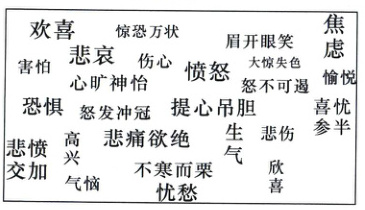 欢喜
惊恐万状
眉开眼笑
焦虑
害怕
悲哀
伤心
愤怒
大惊失色
愉悦
心旷神怡
怒不可遏
恐惧
怒发冲冠
提心吊胆
喜忧参半
悲愤交加
高兴
悲痛欲绝
生气
悲伤
气恼
不寒而栗
欣喜
忧愁